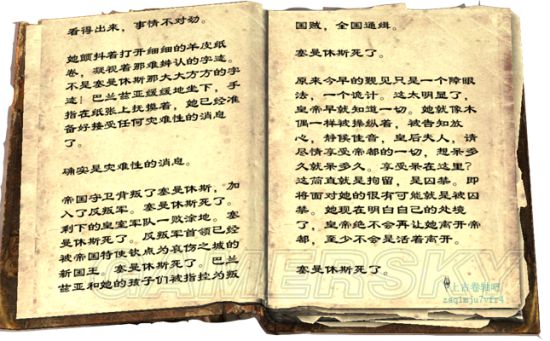 看得出来，事情不对劲。
她颤抖着打开细细的羊皮纸
卷，凝视着那难辨认的字迹。
不是塞曼休斯那大大方方的字
迹！巴兰兹亚缓缓地坐下，手
指在纸张上抚摸着，她已经准
备好接受任何灾难性的消息
了。
确实是灾难性的消息。
帝国守卫背叛了塞曼休斯，加
入了反叛军。塞曼休斯死了。
剩下的皇室军队一败涂地。塞
曼休斯死了。反叛军首领已经
被帝国特使钦点为哀伤之城的
新国王。塞曼休斯死了。巴兰
兹亚和她的孩子们被指控为叛
国贼，全国通缉。
塞曼休斯死了。
原来今早的觐见只是一个障眼
法，一个诡计。这太明显了，
皇帝早就知道一切。她就像木
偶一样被操纵着，被告知放
心，静候佳音，皇后夫人，请
尽情享受帝都的一切，想呆多
久就呆多久。享受呆在这里？
这简直就是拘留，是囚禁。即
将面对她的很有可能就是被囚
禁。她现在明白自己的处境
了，皇帝绝不会再让她离开帝
都，至少不会是活着离开。
塞曼休斯死了。
GAMERSKY
上古卷轴吧
zaq1mju7vfr4